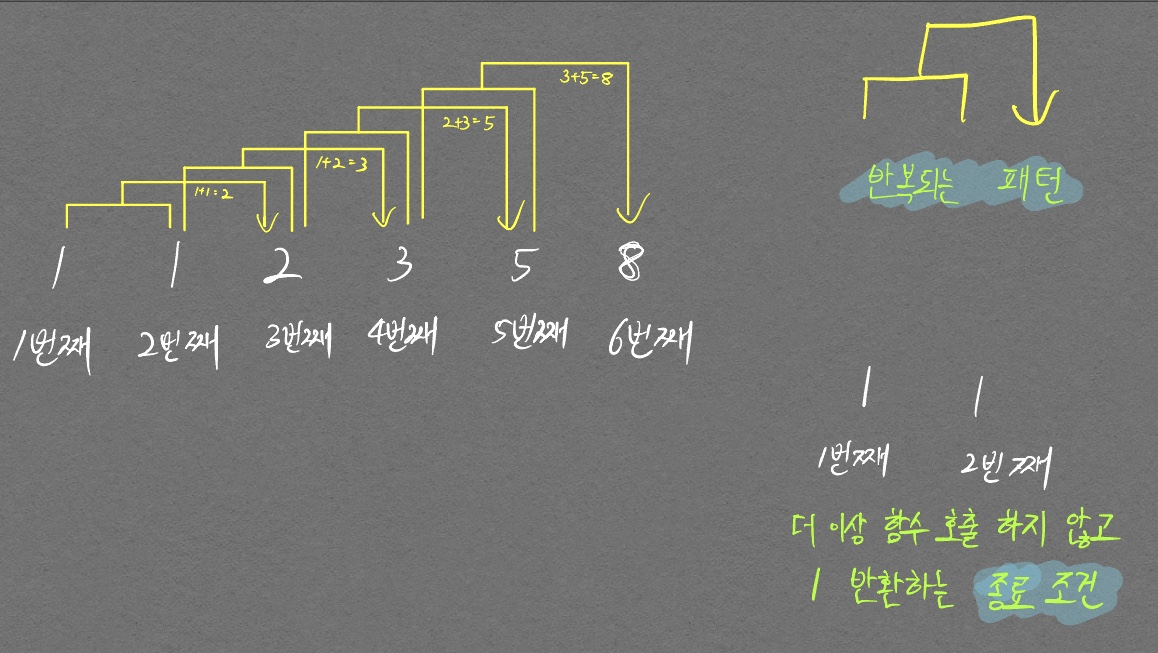 3+5=8
2+3=5
1+2=3
1+1=2
반복되는 패턴
1 1 2 3 5 8
1번째 2번째 3번째 4번째 5번째 6번째
1 1
1번째 2번째
더 이상 함수 호출 하지 않고
1 반환하는 종료 조건